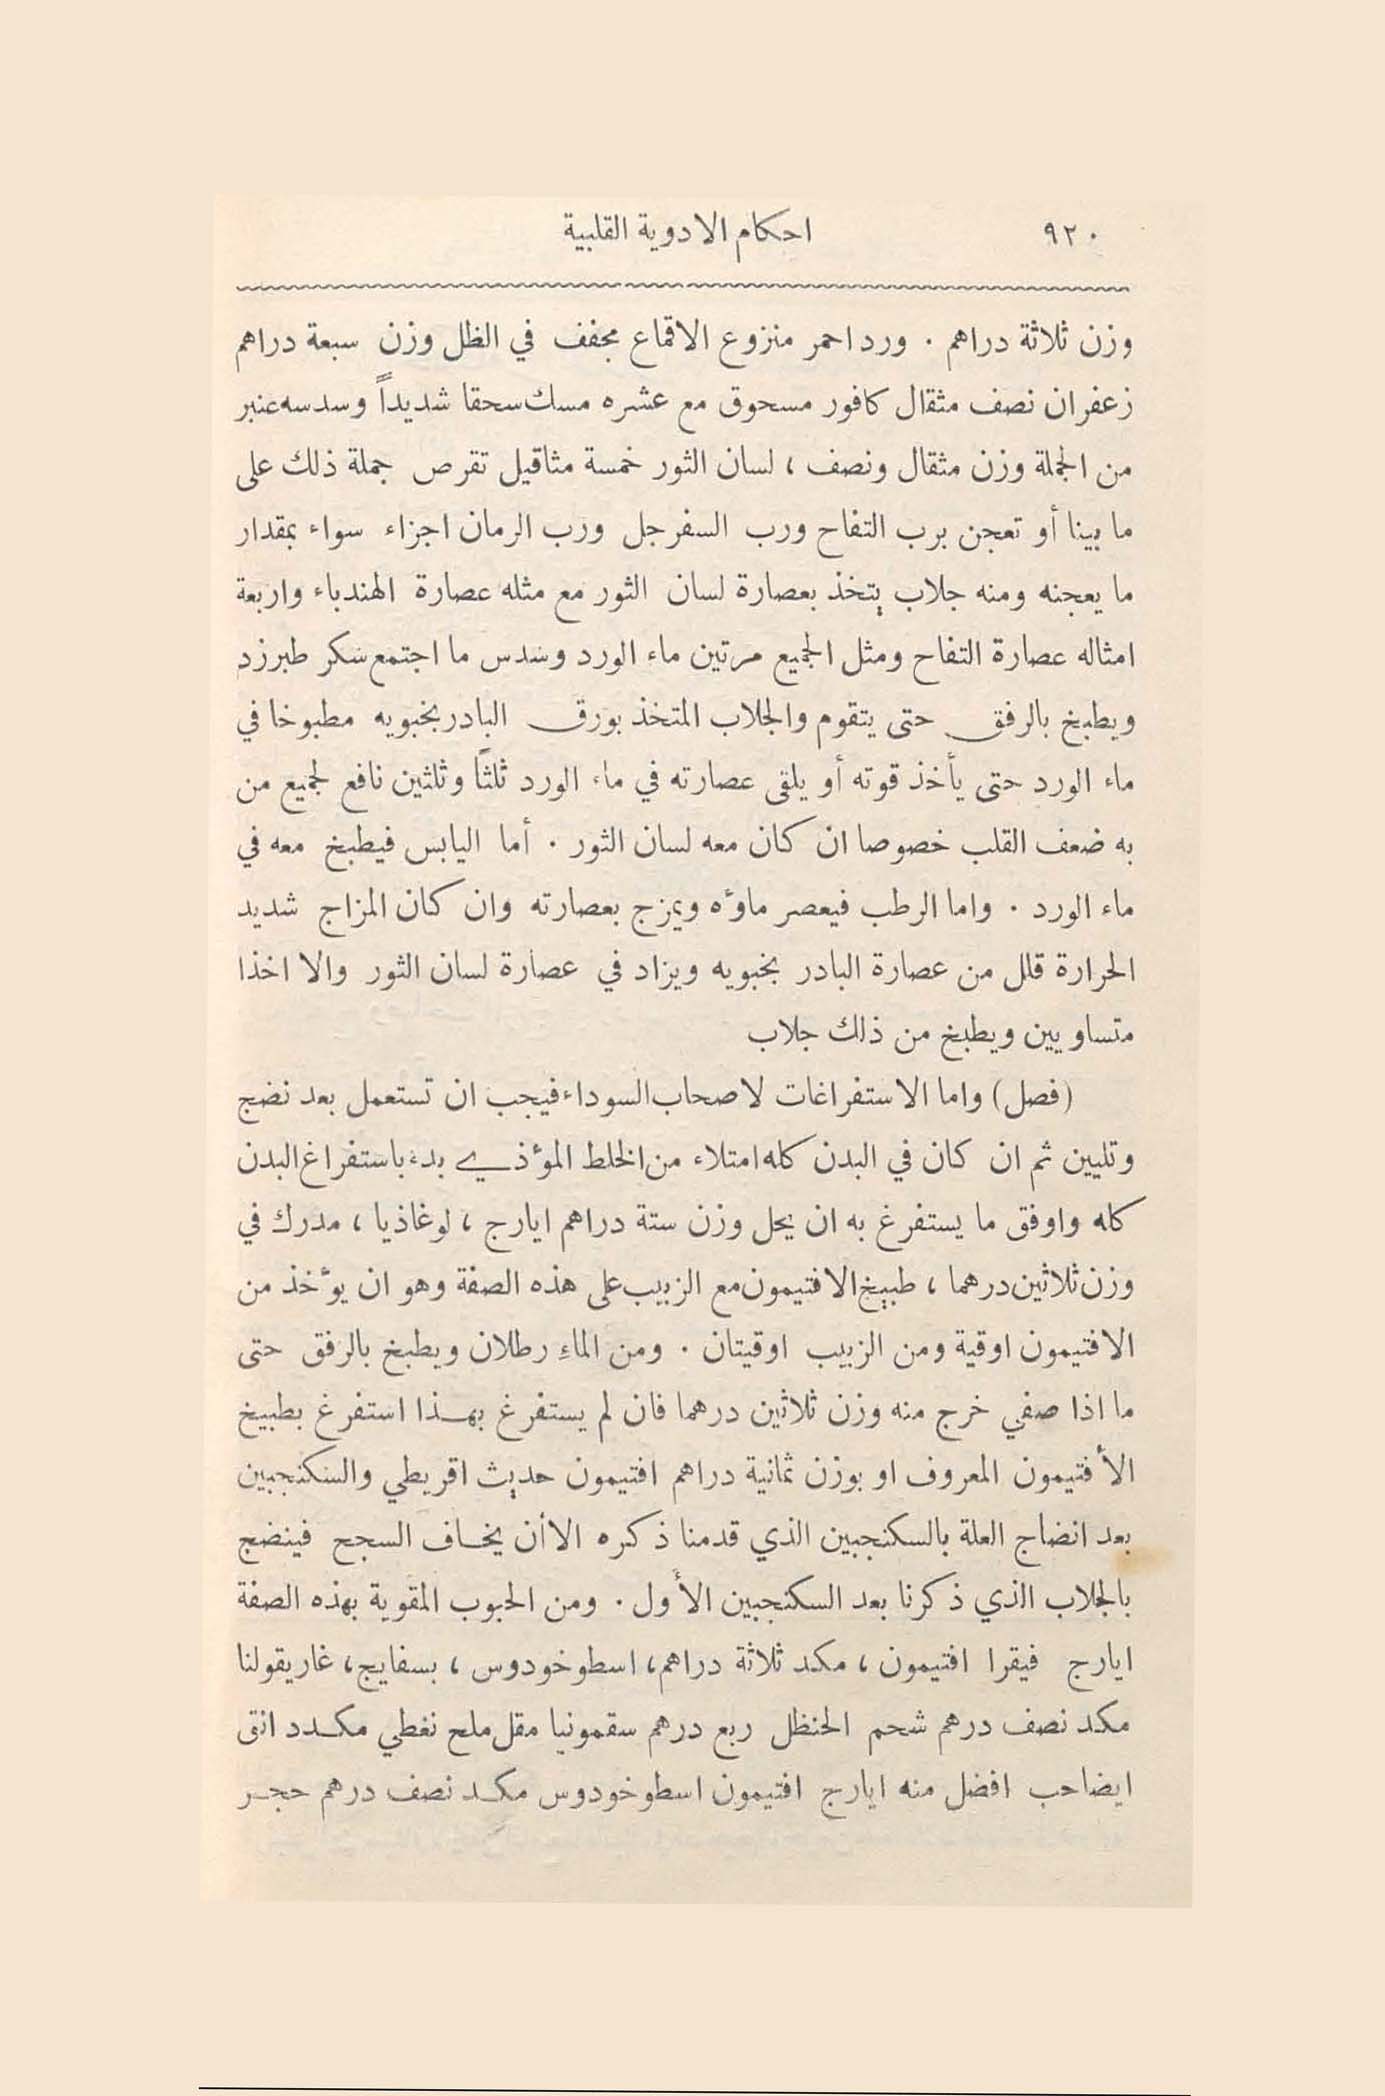 ٩٢٠ احكام الادوية القلبية
وزن ثلاثة دراهم . ورد احمر منزوع الاقماع مجفف في الظل وزن سبعة دراهم
زعفران نصف مثقال كافور مسحوق مع عشره مسك سحقا شديداً وسدسه عنبر
من الجملة وزن مثقال ونصف ، لسان الثور خمسة مثاقيل تقرص جملة ذلك على
ما بينا أو تعجن برب التفاح ورب السفرجل ورب الرمان اجزاء سواء بمقدار
ما يعجنه ومنه جلاب يتخذ بعصارة لسان الثور مع مثله عصارة الهندباء واربعة
امثاله عصارة التفاح ومثل الجميع مرتين ماء الورد وسدس ما اجتمع سكر طبرزد
ويطبخ بالرفق حتى يتقوم والجلاب المتخذ بورق البادر بخبويه مطبوخا في
ماء الورد حتى يأخذ قوته أو يلقى عصارته في ماء الورد ثلثاً وثلثين نافع لجميع من
به ضعف القلب خصوصا ان كان معه لسان الثور . أما اليابس فيطبخ معه في
ماء الورد . واما الرطب فيعصر ماوٴه ويمزج بعصارته وان كان المزاج شديد
الحرارة قلل من عصارة البادر بخبويه ويزاد في عصارة لسان الثور والا اخذا
متساويين ويطبخ من ذلك جلاب
(فصل) واما الاستفراغات لاصحاب السوداء فيجب ان تستعمل بعد نضج
وتليين ثم ان كان في البدن كله امتلاء من الخلط الموٴذي بدء باستفراغ البدن
كله واوفق ما يستفرغ به ان يحل وزن ستة دراهم ايارج ، لوغاذيا ، مدرك في
وزن ثلاثين درهما ، طبيخ الافتيمون مع الزبيب على هذه الصفة وهو ان يوٴخذ من
الافتيمون اوقية ومن الزبيب اوقيتان . ومن الماءِ رطلان ويطبخ بالرفق حتى
ما اذا صفي خرج منه وزن ثلاثين درهما فان لم يستفرغ بهذا استفرغ بطبيخ
الأفتيمون المعروف او بوزن ثمانية دراهم افتيمون حديث اقريطي والسكنجبين
بعد انضاج العلة بالسكنجبين الذي قدمنا ذكره الا أن يخاف السجح فينضج
بالجلاب الذي ذكرنا بعد السكنجبين الأول . ومن الحبوب المقوية بهذه الصفة
ايارج فيقرا افتيمون ، مكد ثلاثة دراهم ، اسطوخودوس ، بسفايج ، غاريقولنا
مكد نصف درهم شحم الحنظل ربع درهم سقمونيا مقل ملح نفطي مكدد انتى
ايضاحب افضل منه ايارج افتيمون اسطوخودوس مكد نصف درهم حجر